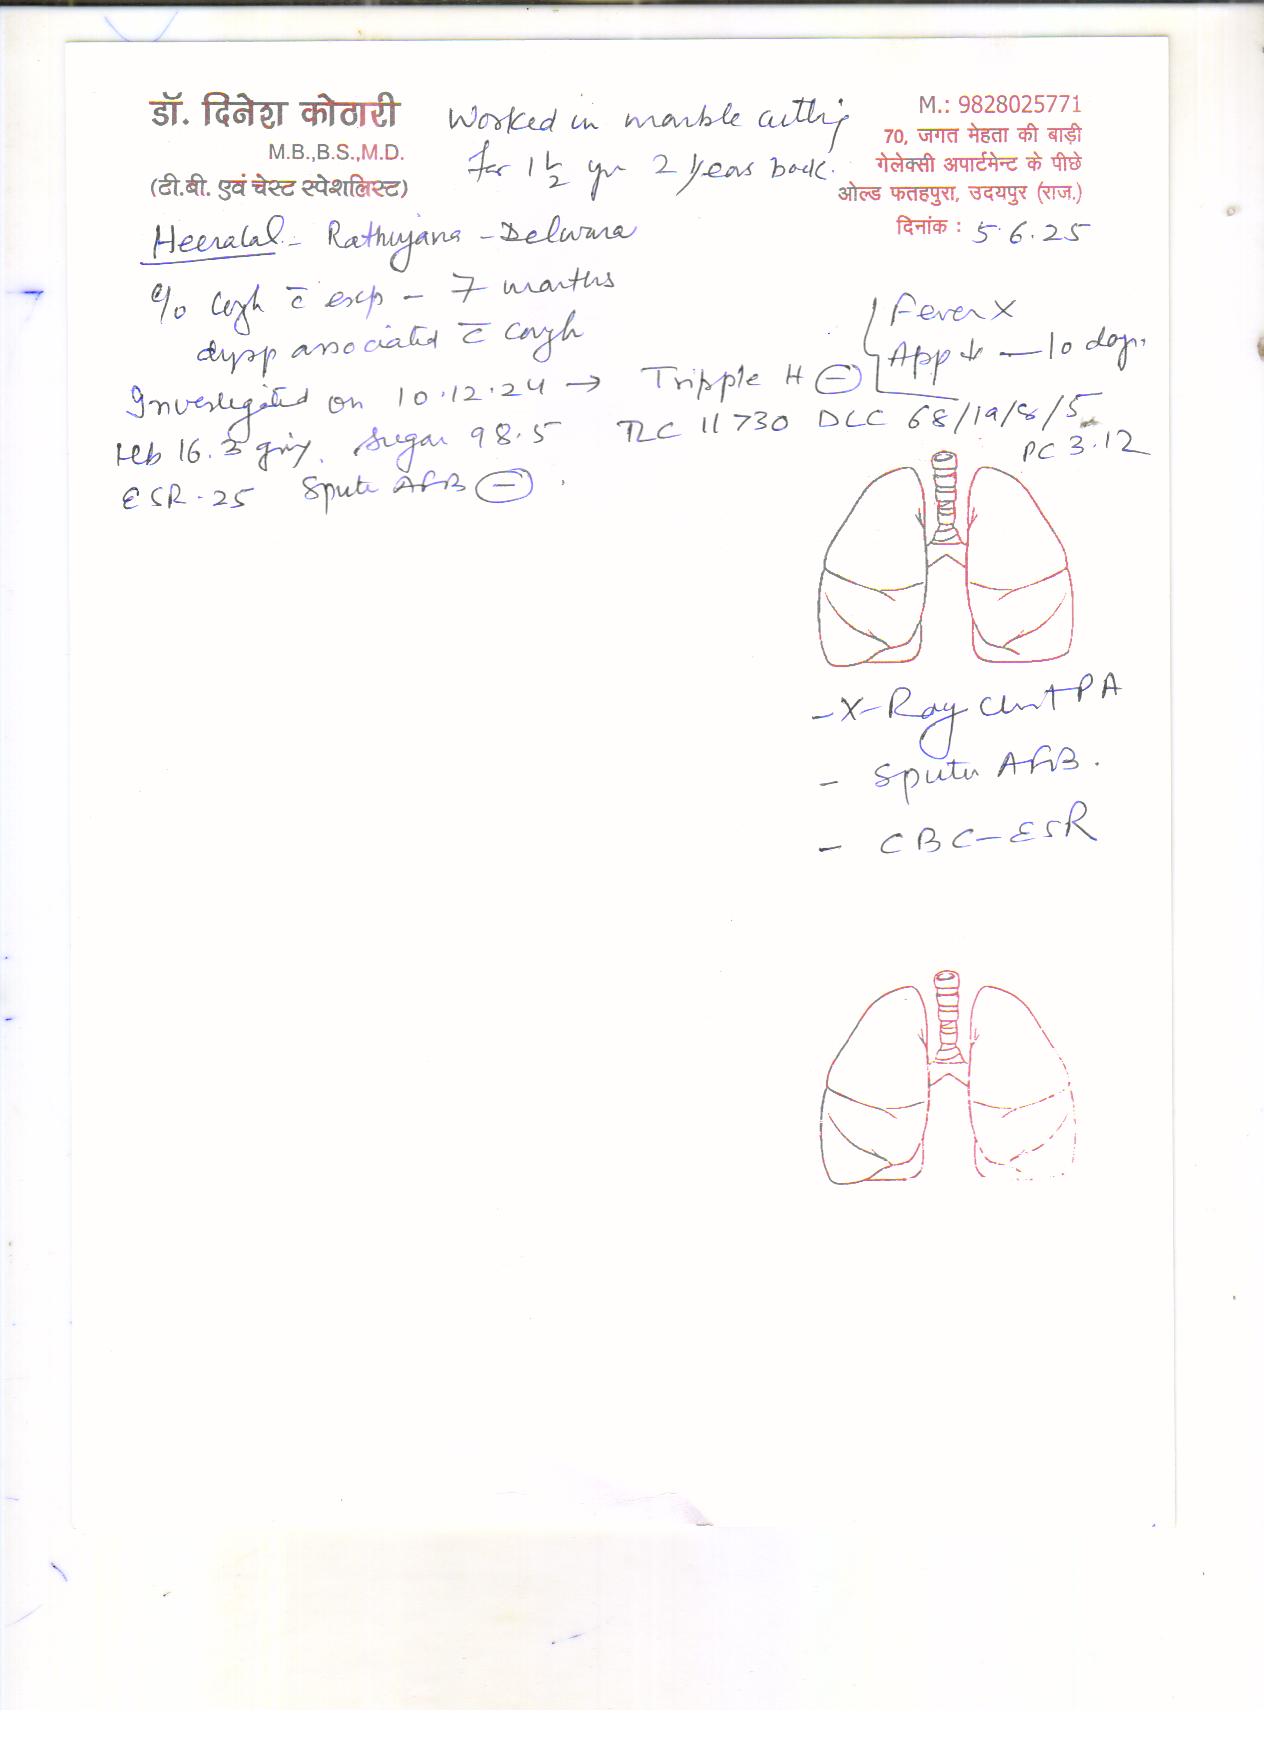 डॉ. दिनेश कोठारी
M.B.,B.S.,M.D.
(टी.बी. एवं चेस्ट स्पेशलिस्ट)
Worked in marble cutting
for 1 1/2 yr 2 years back.
M.: 9828025771
70, जगत मेहता की बाड़ी
गेलेक्सी अपार्टमेन्ट के पीछे
ओल्ड फतहपुरा, उदयपुर (राज.)
दिनांक : 5.6.25
Heeralal - Rathujana - Delwara
c/o Cough c̄ exp - 7 months
dysp associated c̄ cough
Fever X
App ↓ — 10 days.
Investigated on 10.12.24 → Tripple H ⊖
Hb 16.3 gm%. Sugar 98.5 TLC 11730 DLC 68/19/8/5
PC 3.12
ESR - 25 Sputu AFB ⊖.
- X-Ray Chest PA
- Sputu AFB.
- CBC - ESR